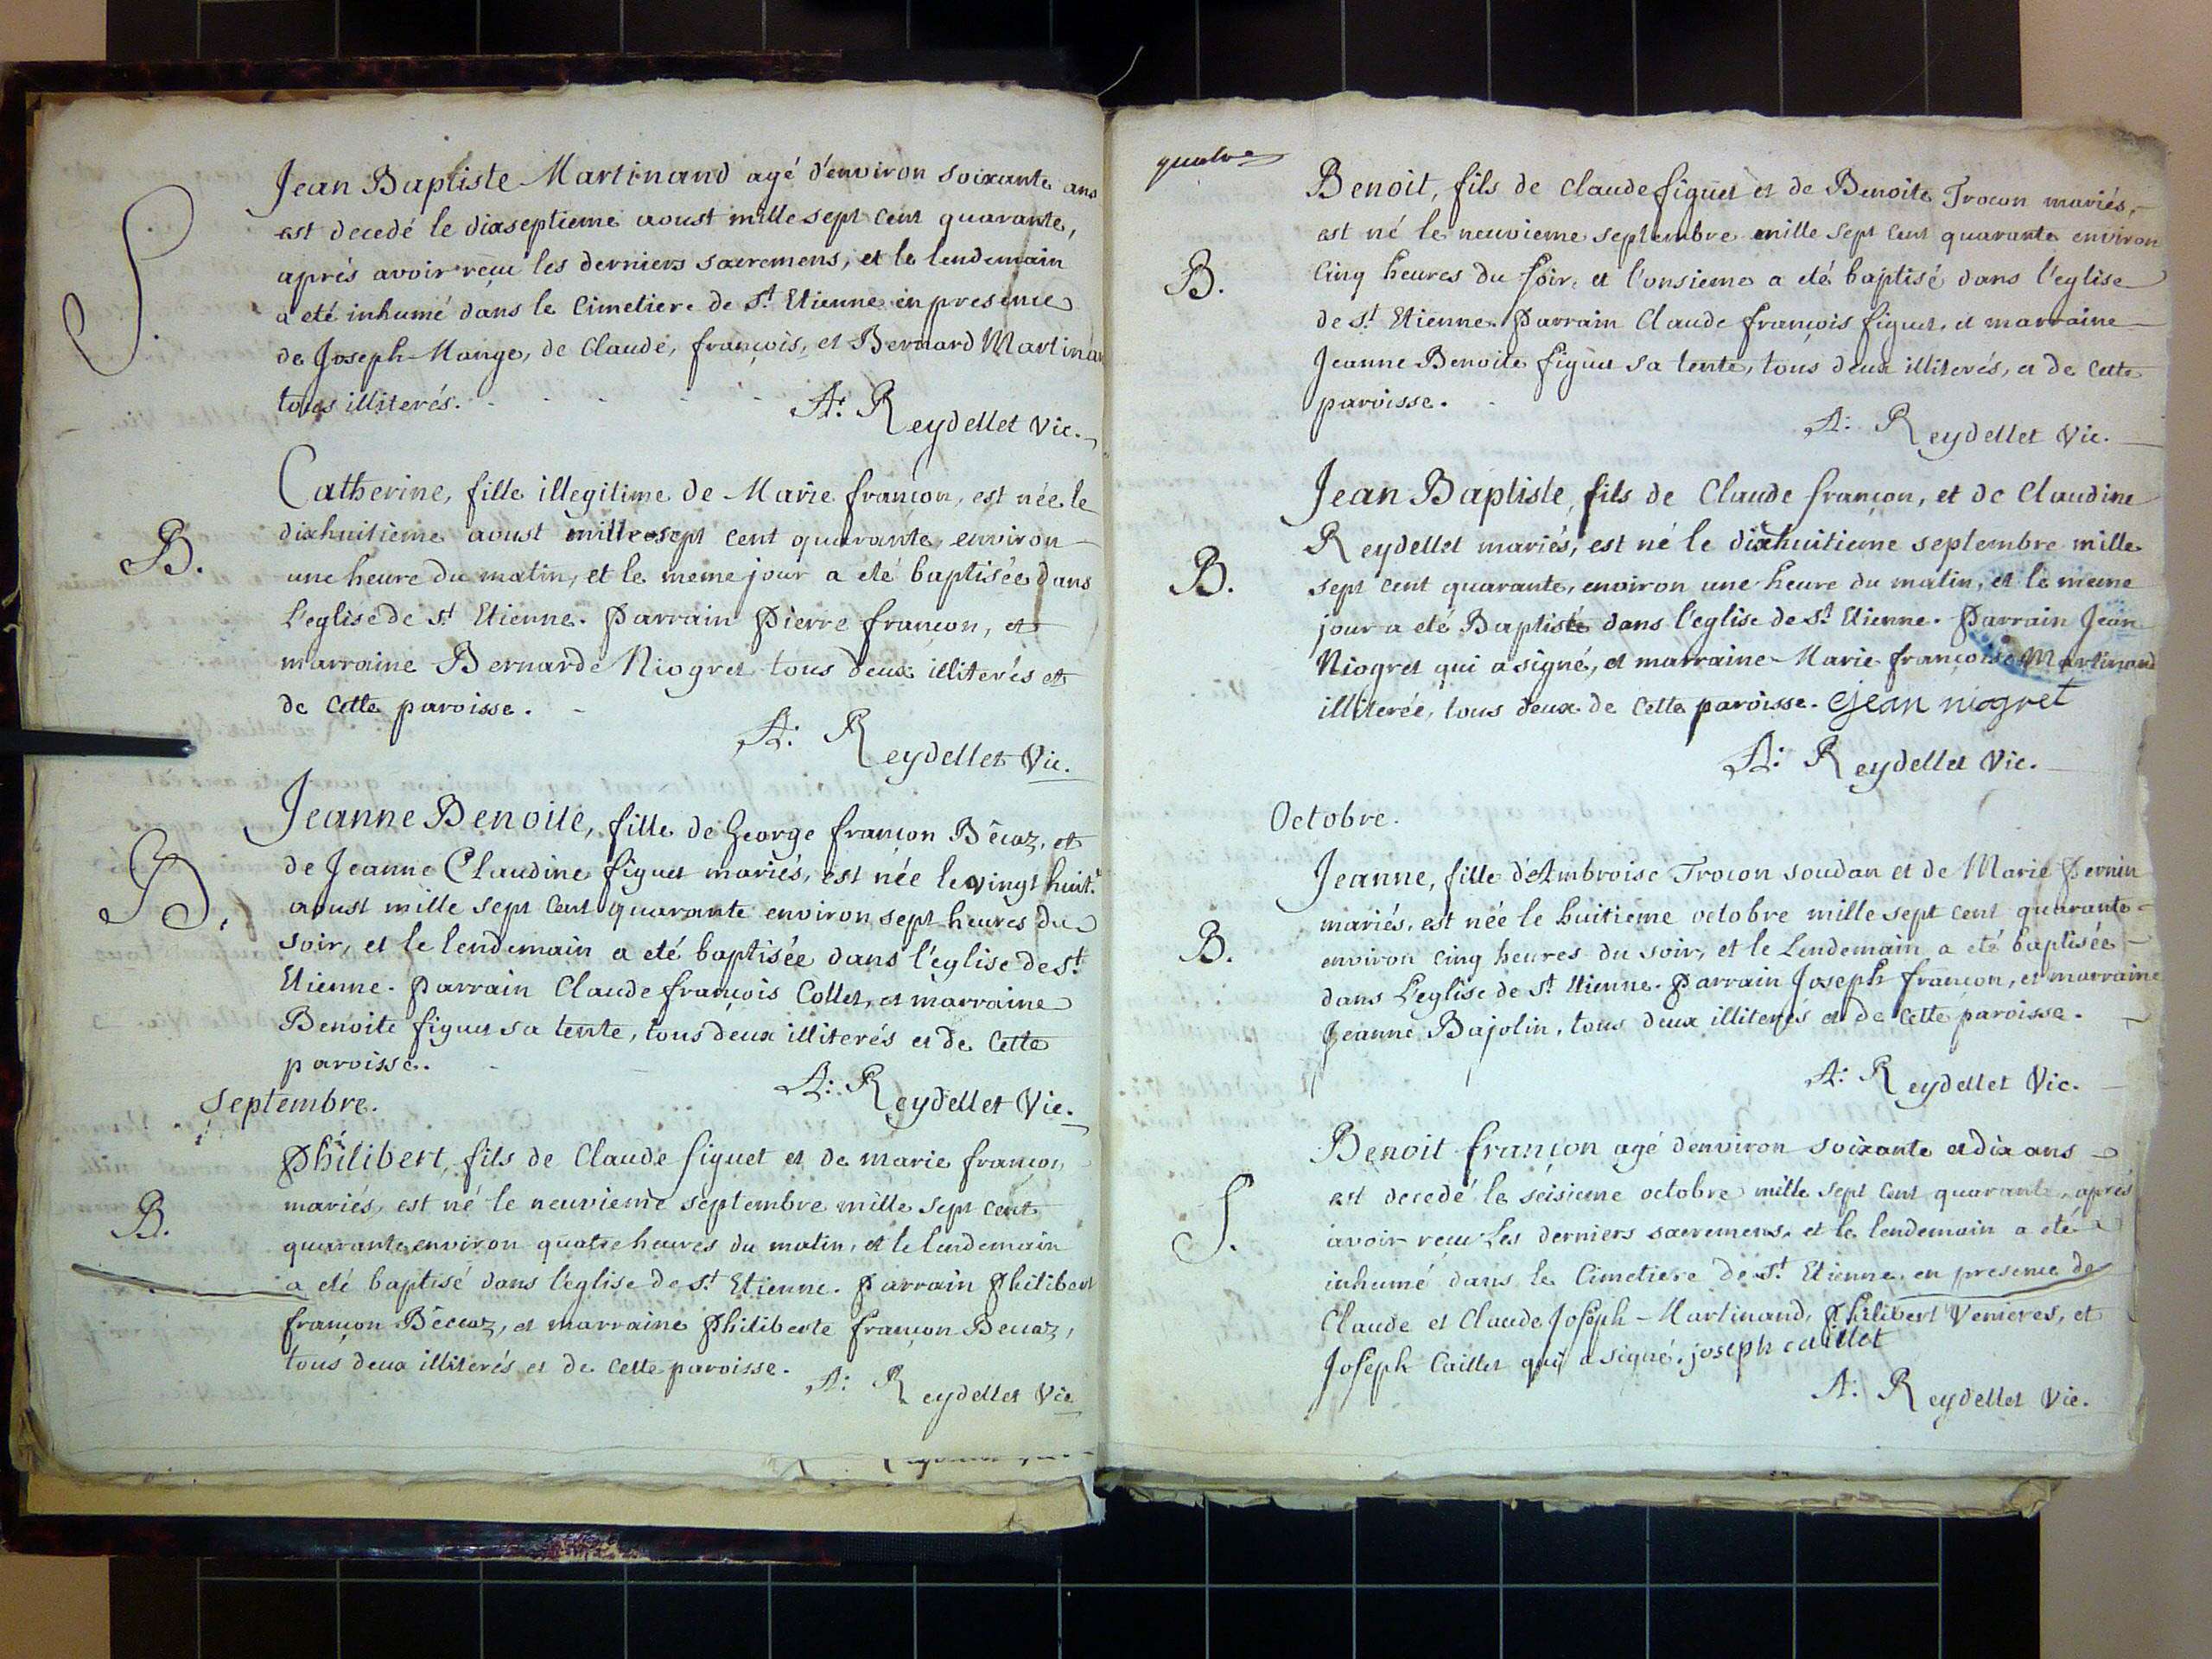 Jean Baptiste Martinand agé d'environ soixante ans
S.
est decedé le dixseptieme aoust mille sept cent quarante,
aprés avoir reçu les derniers sacremens, et le lendemain
a eté inhumé dans le Cimetiere de St Etienne en presence
de Joseph Mange, de Claude, françois, et Bernard Martinan
tous illiterés.
A: Reydellet Vic.
Catherine, fille illegitime de Marie françon, est née le
B.
dixhuitieme aoust mille sept cent quarante, environ
une heure du matin, et le meme jour a eté baptisée dans
L'eglise de St Etienne. Parrain Pierre françon, et
marraine Bernarde Niogret tous deux illiterés et
de cette paroisse.
A: Reydellet Vic.
Jeanne Benoite, fille de George françon Bécaz, et
B.
de Jeanne Claudine figuet mariés, est née le vingt huit.e
aoust mille sept cent quarante environ sept heures du
soir, et le lendemain a eté baptisée dans l'église de St
Etienne. Parrain Claude françois Collet, et marraine
Benoite figuet sa tente, tous deux illiterés et de cette
paroisse.
A: Reydellet Vic.
Septembre.
Philibert, fils de Claude figuet et de marie françon
B.
mariés, est né le neuvieme septembre mille sept cent
quarante environ quatre heures du matin, et le lendemain
a eté baptisé dans l'eglise de St Etienne. Parrain Philibert
françon Béccaz, et marraine Philiberte françon Beccaz,
tous deux illiterés et de cette paroisse.
A: Reydellet Vic
quatre
Benoit, fils de Claude figuet et de Benoite Trocon mariés,
est né le neuvieme septembre mille sept cent quarante environ
B.
Cinq heures du soir, et l'onsieme a eté baptisé dans l'eglise
de St Etienne. Parrain Claude françois figuet, et marraine
Jeanne Benoite figuet sa tente, tous deux illiterés, et de cette
paroisse.
A: Reydellet Vic.
Jean Baptiste, fils de Claude françon, et de Claudine
Reydellet mariés, est né le dixhuitieme septembre mille
B.
sept cent quarante, environ une heure du matin, et le meme
jour a eté Baptisé dans l'eglise de St Etienne. Parrain Jean
Niogret qui a signé, et marraine Marie françoise Martinand
illiterée, tous deux de cette paroisse. jean niogret
A: Reydellet Vic.
Octobre.
Jeanne, fille d'Ambroise Trocon soudan et de Marie Pernin
mariés, est née le huitieme octobre mille sept cent quarante
B.
environ cinq heures du soir, et le Lendemain a eté baptisée
dans L'eglise de St Etienne. Parrain Joseph françon, et marraine
Jeanne Bajolin, tous deux illiterés et de cette paroisse.
A: Reydellet Vic.
Benoit françon agé d'environ soixante et dix ans
est decedé le seisieme octobre mille sept cent quarante, aprés
S.
avoir recu Les derniers sacremens, et le lendemain a eté
inhumé dans le Cimetiere de St Etienne, en presence de
Claude et Claude Joseph Martinand, Philibert Venieres, et
Joseph Caillet qui a signé. joseph caillet
A: Reydellet Vic.